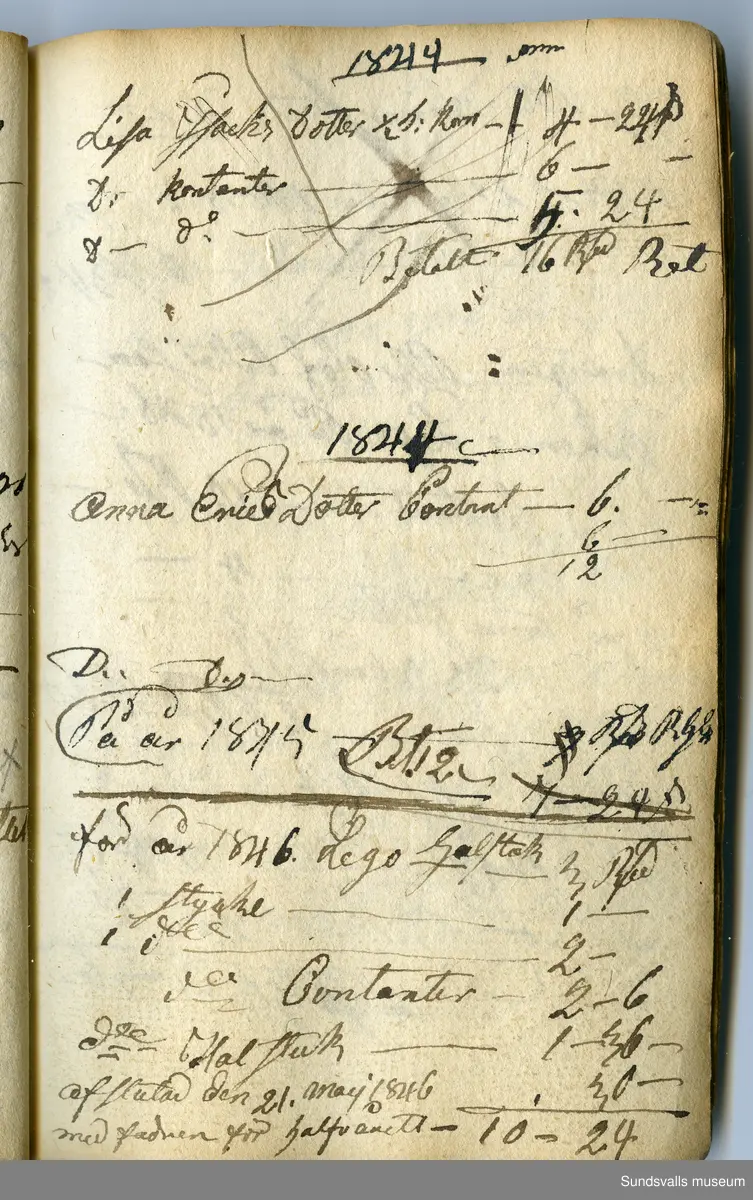 1844
Lisa Isacks Dotter ½ t: korn — 4 — 24 ß
Do kontanter — 6 — —
D — do — 5. 24
Betalt 16 Rd Rgt
1844
Anna Erics Dotter Contant — 6. —
6 —
12
D.. Do —
På år 1845
Bt. 12
4 — 24 ß
för år 1846. Lego halstuk 3 Rd
1 stycke — 1 —
1 dto — 2 —
dto Contanter — 2 — 6
dto Halstuk — 1 — 36 —
afslutad den 21. maj 1846 36 —
med fadren för halfva året — 10 — 24
Sundsvalls museum